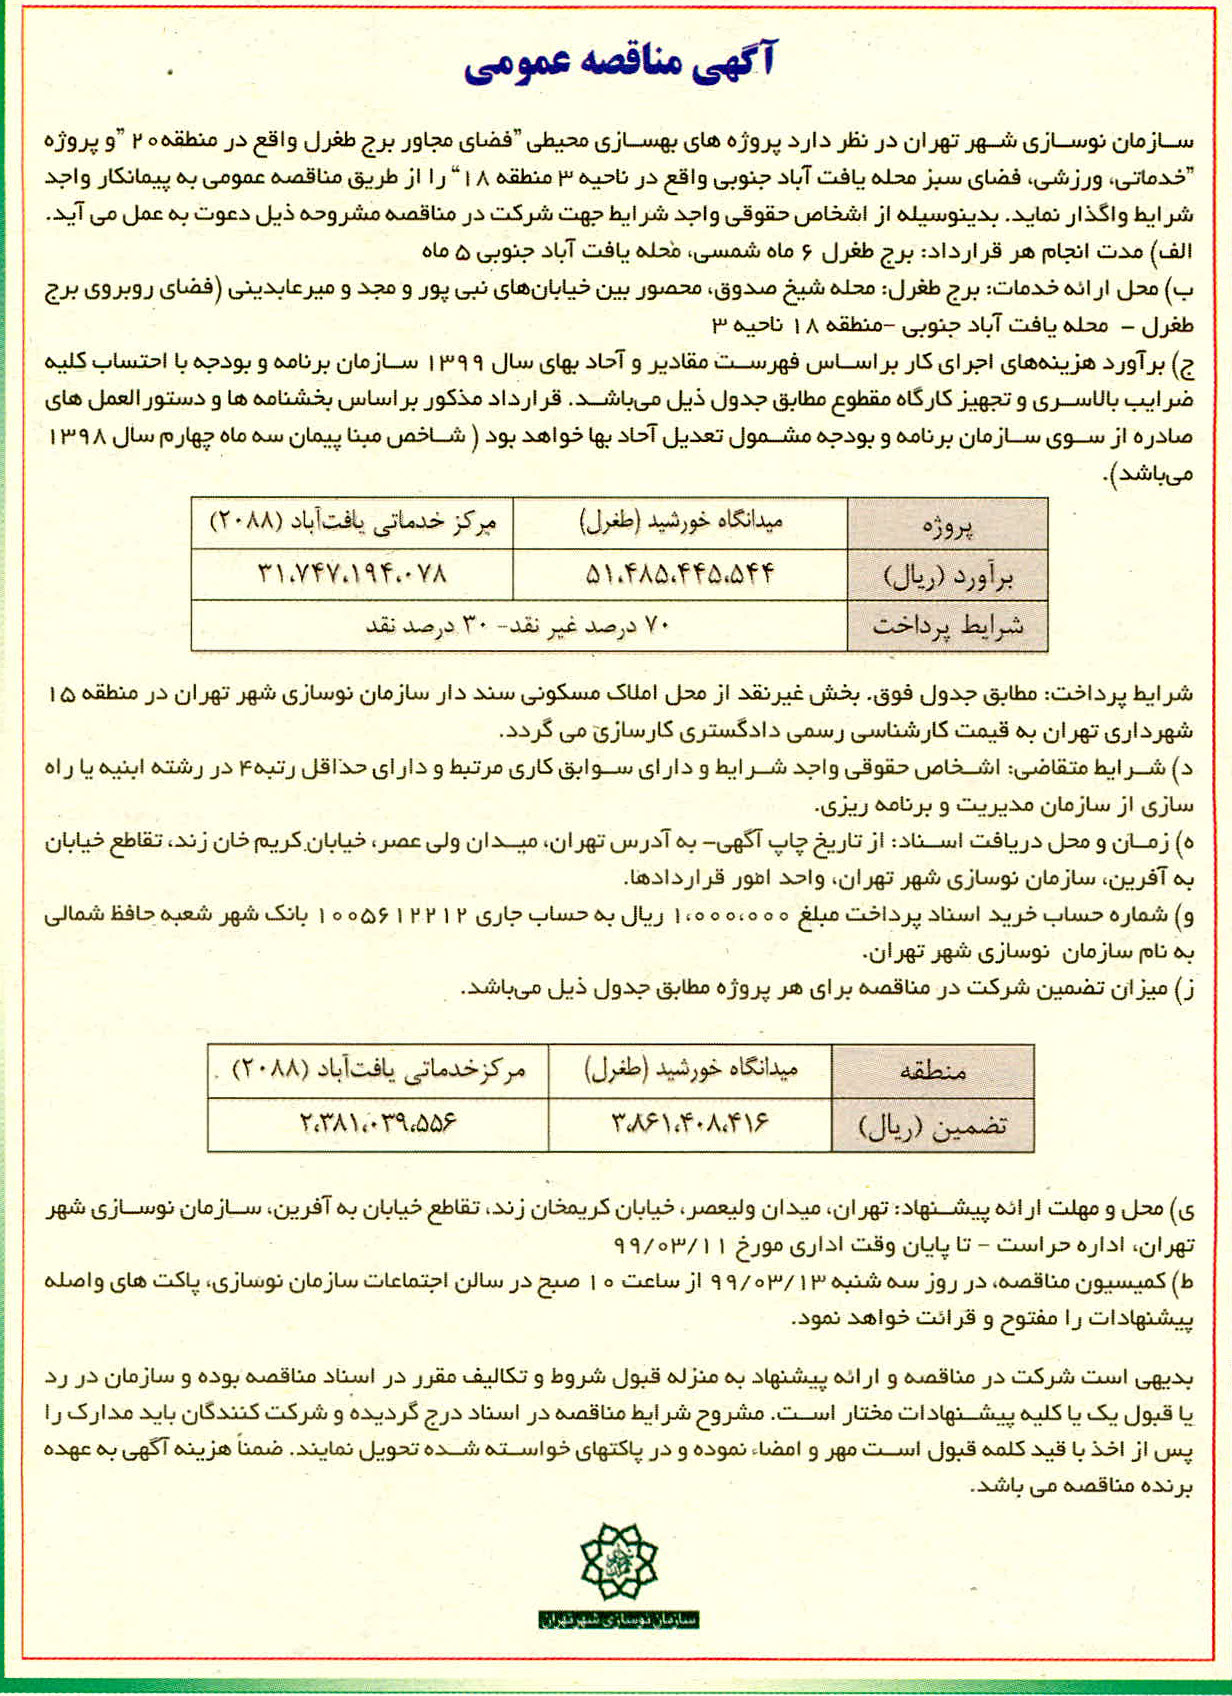 آگهی مناقصه عمومی
سازمان نوسازی شهر تهران در نظر دارد پروژه های بهسازی محیطی "فضای مجاور برج طغرل واقع در منطقه۲۰ "و پروژه
"خدماتی، ورزشی، فضای سبز محله یافت آباد جنوبی واقع در ناحیه ۳ منطقه ۱۸" را از طریق مناقصه عمومی به پیمانکار واجد
شرایط واگذار نماید. بدینوسیله از اشخاص حقوقی واجد شرایط جهت شرکت در مناقصه مشروحه ذیل دعوت به عمل می آید.
الف) مدت انجام هر قرارداد: برج طغرل ۶ ماه شمسی، محله یافت آباد جنوبی ۵ ماه
ب) محل ارائه خدمات: برج طغرل: محله شیخ صدوق، محصور بین خیابان‌های نبی پور و مجد و میرعابدینی (فضای روبروی برج
طغرل – محله یافت آباد جنوبی –منطقه ۱۸ ناحیه ۳
ج) برآورد هزینه‌های اجرای کار براساس فهرست مقادیر و آحاد بهای سال ۱۳۹۹ سازمان برنامه و بودجه با احتساب کلیه
ضرایب بالاسری و تجهیز کارگاه مقطوع مطابق جدول ذیل می‌باشد. قرارداد مذکور براساس بخشنامه ها و دستورالعمل های
صادره از سوی سازمان برنامه و بودجه مشمول تعدیل آحاد بها خواهد بود ( شاخص مبنا پیمان سه ماه چهارم سال ۱۳۹۸
می‌باشد).
پروژه میدانگاه خورشید (طغرل) مرکز خدماتی یافت‌آباد (۲۰۸۸)
برآورد (ریال) ۵۱،۴۸۵،۴۴۵،۵۴۴ ۳۱،۷۴۷،۱۹۴،۰۷۸
شرایط پرداخت ۷۰ درصد غیر نقد- ۳۰ درصد نقد
شرایط پرداخت: مطابق جدول فوق. بخش غیرنقد از محل املاک مسکونی سند دار سازمان نوسازی شهر تهران در منطقه ۱۵
شهرداری تهران به قیمت کارشناسی رسمی دادگستری کارسازی می گردد.
د) شرایط متقاضی: اشخاص حقوقی واجد شرایط و دارای سوابق کاری مرتبط و دارای حداقل رتبه۴ در رشته ابنیه یا راه
سازی از سازمان مدیریت و برنامه ریزی.
ه) زمان و محل دریافت اسناد: از تاریخ چاپ آگهی– به آدرس تهران، میدان ولی عصر، خیابان کریم خان زند، تقاطع خیابان
به آفرین، سازمان نوسازی شهر تهران، واحد امور قراردادها.
و) شماره حساب خرید اسناد پرداخت مبلغ ۱،۰۰۰،۰۰۰ ریال به حساب جاری ۱۰۰۵۶۱۲۲۱۲ بانک شهر شعبه حافظ شمالی
به نام سازمان نوسازی شهر تهران.
ز) میزان تضمین شرکت در مناقصه برای هر پروژه مطابق جدول ذیل می‌باشد.
منطقه میدانگاه خورشید (طغرل) مرکزخدماتی یافت‌آباد (۲۰۸۸)
تضمین (ریال) ۳،۸۶۱،۴۰۸،۴۱۶ ۲،۳۸۱،۰۳۹،۵۵۶
ی) محل و مهلت ارائه پیشنهاد: تهران، میدان ولیعصر، خیابان کریمخان زند، تقاطع خیابان به آفرین، سازمان نوسازی شهر
تهران، اداره حراست – تا پایان وقت اداری مورخ ۹۹/۰۳/۱۱
ط) کمیسیون مناقصه، در روز سه شنبه ۹۹/۰۳/۱۳ از ساعت ۱۰ صبح در سالن اجتماعات سازمان نوسازی، پاکت های واصله
پیشنهادات را مفتوح و قرائت خواهد نمود.
بدیهی است شرکت در مناقصه و ارائه پیشنهاد به منزله قبول شروط و تکالیف مقرر در اسناد مناقصه بوده و سازمان در رد
یا قبول یک یا کلیه پیشنهادات مختار است. مشروح شرایط مناقصه در اسناد درج گردیده و شرکت کنندگان باید مدارک را
پس از اخذ با قید کلمه قبول است مهر و امضاء نموده و در پاکتهای خواسته شده تحویل نمایند. ضمناً هزینه آگهی به عهده
برنده مناقصه می باشد.
سازمان نوسازی شهر تهران